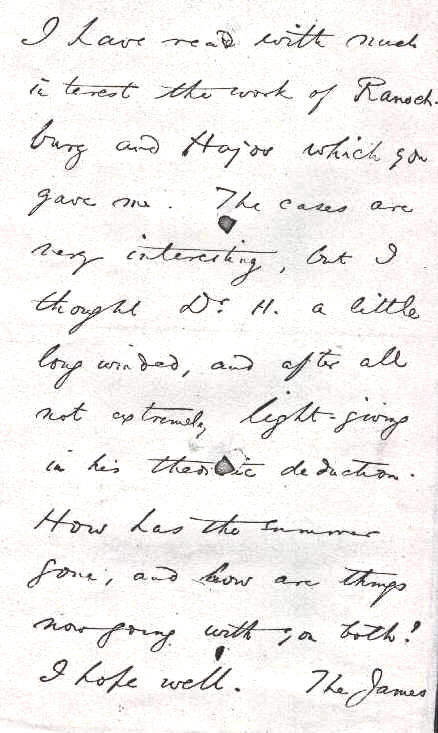 I have read with much
interest the work of Ransch-
burg and Hajos which you
gave me. The cases are
very interesting, but I
thought Dr. H. a little
long winded, and after all
not extremely light-giving
in his theoretic deduction.
How has the summer
gone, and how are things
now going with you both?
I hope well. The James